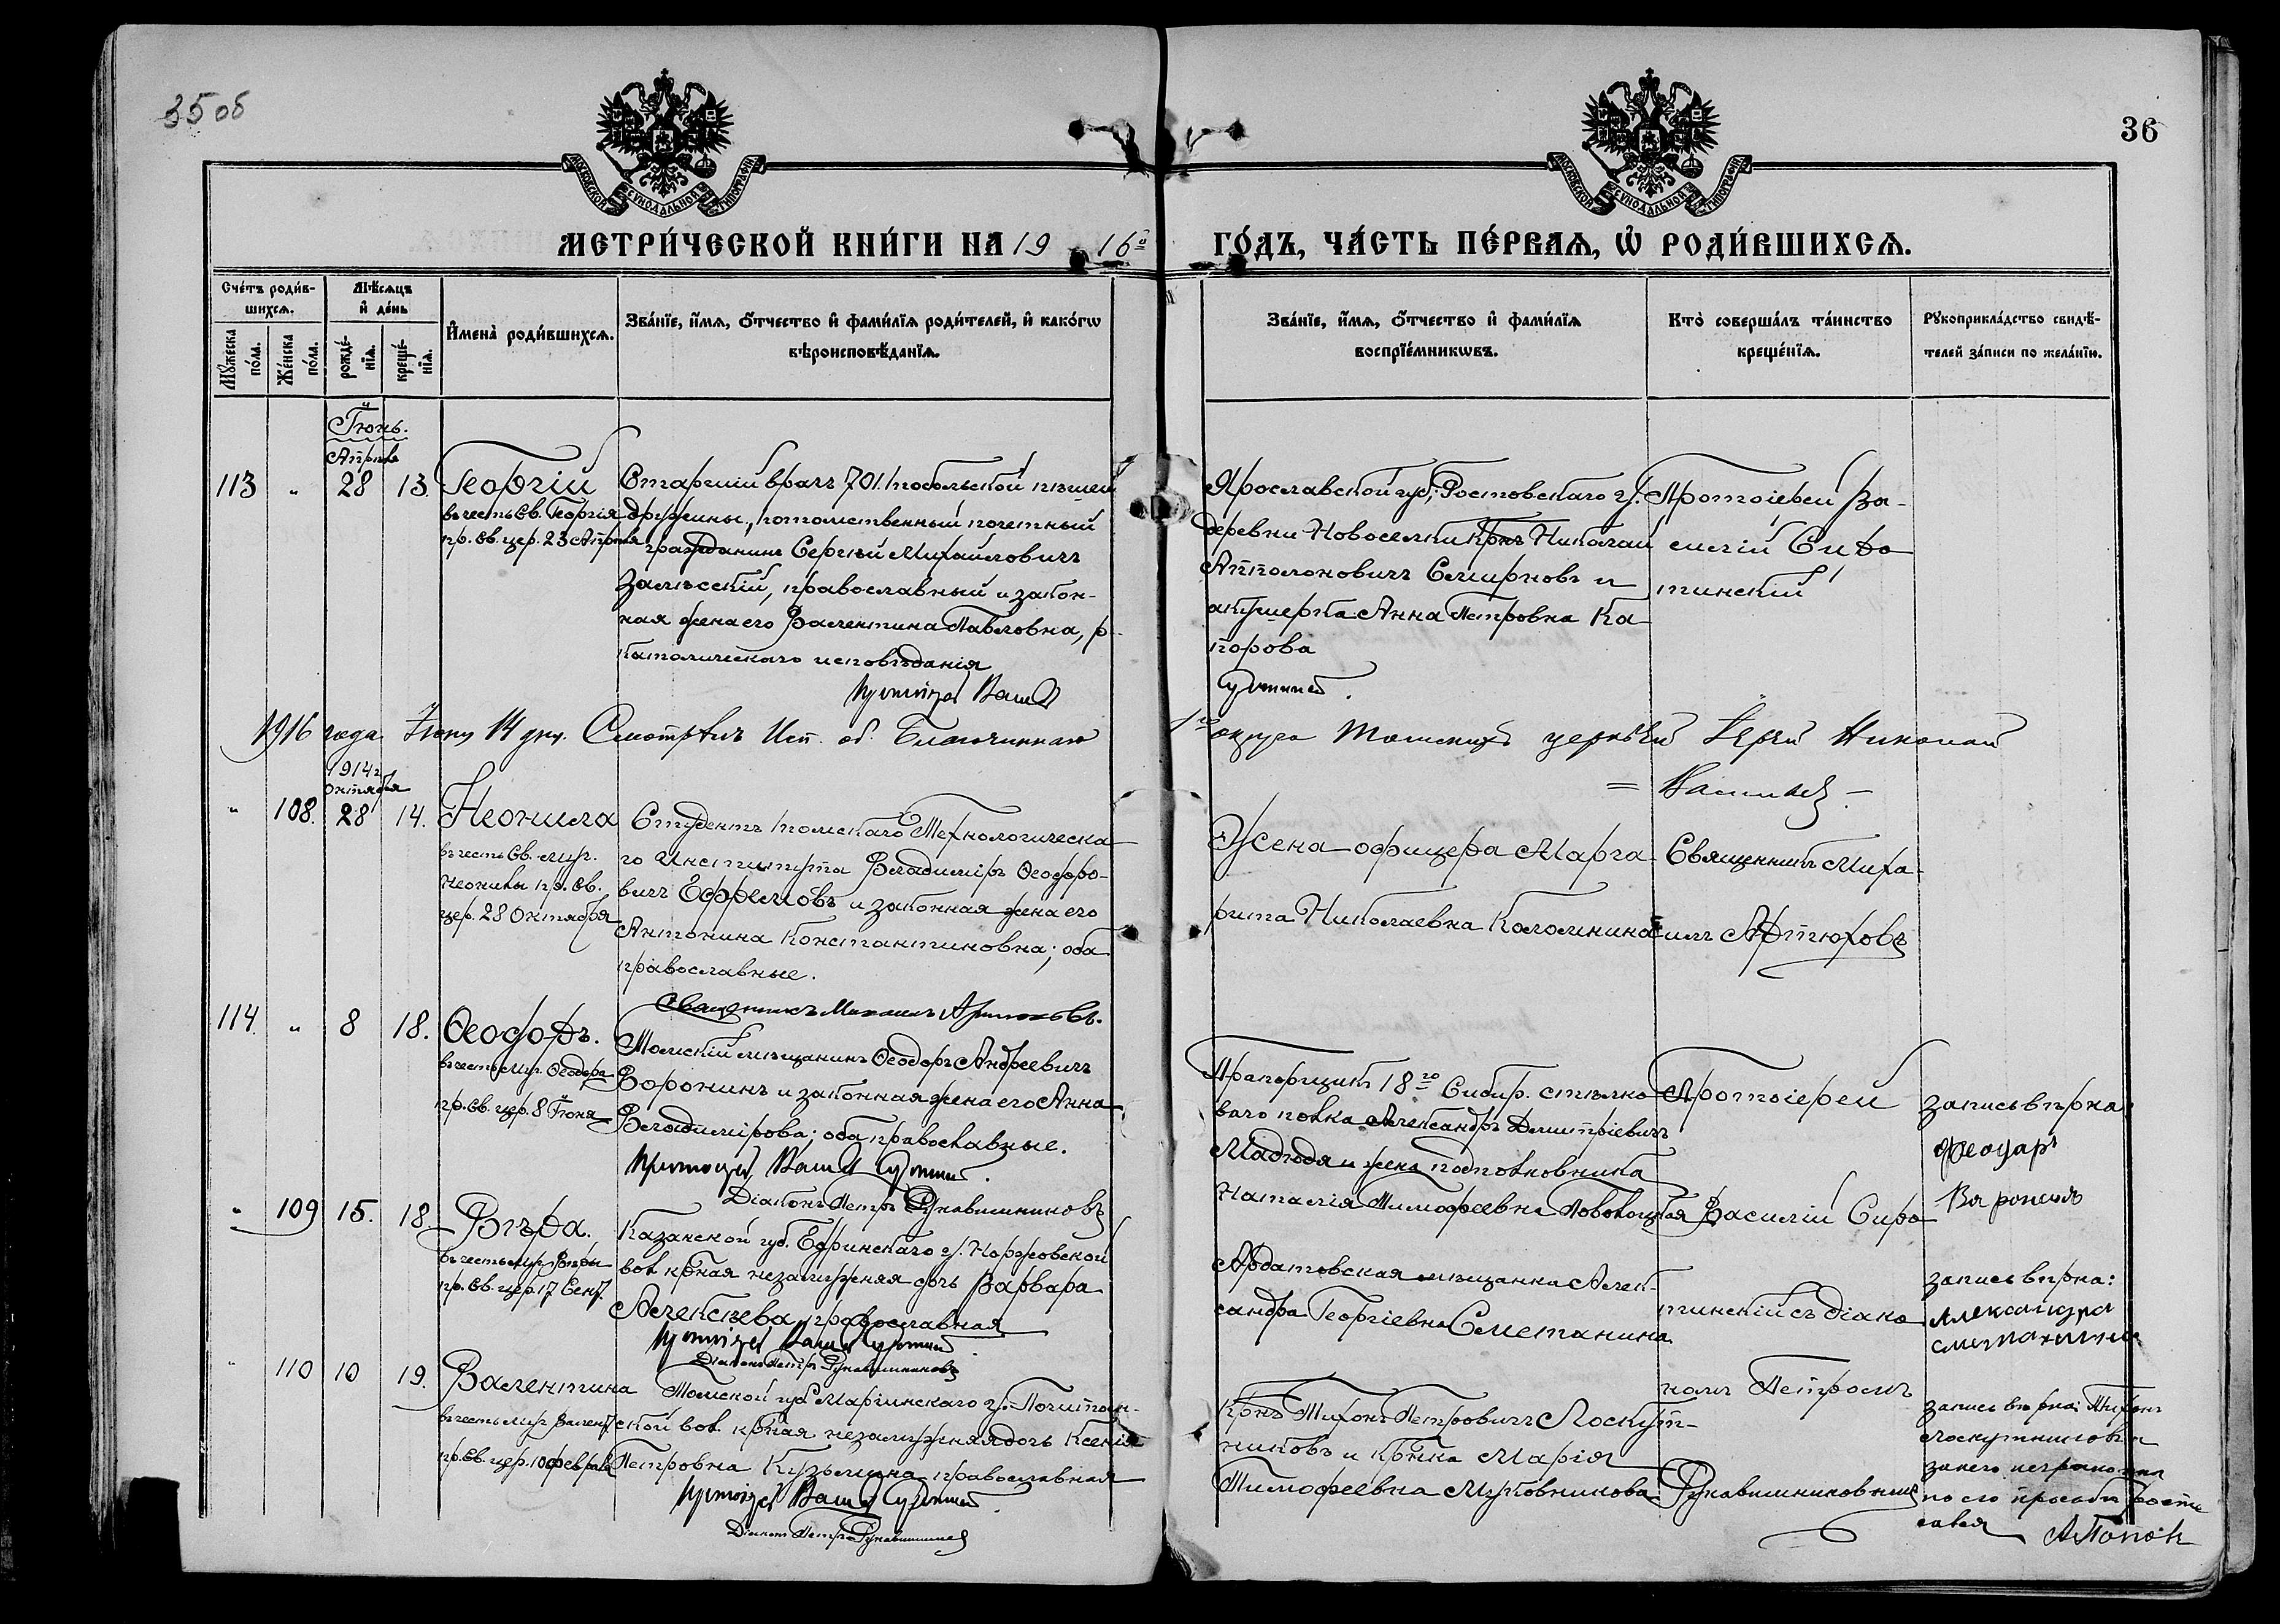 35 об
36
МОСКОВСКОЙ СѴНОДАЛЬНОЙ ТИПОГРАФІИ
МОСКОВСКОЙ СѴНОДАЛЬНОЙ ТИПОГРАФІИ
МЕТРИ́ЧЕСКОЙ КНИ́ГИ НА 1916го ГО́ДЪ, ЧА́СТЬ ПЕ́РВАѦ, Ѡ҆ РОДИ́ВШИХСѦ.
Сче́тъ роди́в-
шихсѧ.
Мꙋ́жеска по́ла.
Же́нска по́ла.
Мѣ́сѧцъ
и҆ де́нь
рожде́-нїѧ.
креще́-нїѧ.
И҆мена̀ роди́вшихсѧ.
Зва́нїе, и҆́мѧ, ѻ҆́тчество и҆ фами́лїѧ роди́телей, и҆ како́гѡ
вѣроисповѣ́данїѧ.
Зва́нїе, и҆́мѧ, ѻ҆́тчество и҆ фами́лїѧ
воспрїе́мникѡвъ.
Кто̀ соверша́лъ та́инство
креще́нїѧ.
Рꙋкоприкла́дство свидѣ́-
телей за́писи по жела́нїю.
Іюнь.
Апрѣля
113 " 28 13. Георгій
въ честь Св. Георгія
пр. Св. цер. 23 Апрѣля
Старшій врачъ 701. Тобольской пѣшей
дружины, потомственный почетный
гражданинъ Сергѣй Михайловичъ
Залѣсскій, православный и закон-
ная жена его Валентина Павловна, р-
католическаго исповѣданія
Протоіерей Васил
Ярославской губ., Ростовскаго у.
деревни Новоселки крнъ Николай
Апполоновичъ Смирновъ и
акушерка Анна Петровна Ка-
порова
Протоіерей Ва-
силій Сиро-
тинскій
1916 года Іюня 14 дня. Смотрѣлъ Исп. об. Благочиннаго 1го округа Томскихъ церквей Іерей Николай
= Васильев –
1914 г.
Октября
" 108. 28 14. Неонила
въ честь Св. муч.
Неонилы пр. Св.
цер. 28 Октября
Студентъ Томскаго Технологическа-
го Института Владиміръ Ѳеодоро-
вичъ Ефремовъ и законная жена его
Антонина Константиновна; оба
православные.
Священникъ Михаилъ Артюховъ.
Жена офицера Марга-
рита Николаевна Коломнина
Священникъ Миха-
илъ Артюховъ
114. " 8 18. Ѳеодоръ.
въ честь муч. Ѳеодора
пр. Св. цер. 8 Іюня
Томскій мѣщанинъ Ѳеодоръ Андреевичъ
Воронинъ и законная жена его Анна
Владимірова; оба православные.
Протоіерей Васил
Діаконъ Петръ Рукавишниковъ
Прапорщикъ 18го Сибир. стрѣлко-
ваго полка Александръ Димитріевичъ
и жена подполковника
Наталія Тимофеевна
Протоіерей
Василій Сиро-
запись вѣрна:
Феодаръ
Варонинъ
" 109 15. 18. Вѣра.
въ честь муч. Вѣры
пр. Св. цер. 17 Сент.
Казанской губ. у.
вол. крная незамужняя дочь Варвара
Алексѣева, православная
Протоіерей Васил
Діаконъ Петръ Рукавишниковъ
Ардатовская мѣщанка Алек-
сандра Георгіевна Сметанина
тинскій съ діако-
запись вѣрна:
Александра
Сметанина
" 110 10 19. Валентина
въ честь муч. Вален.
пр. Св. цер. 10 февраля
Томской губ. Маріинскаго у. Почитан-
ской вол. крная незамужняя дочь Ксенія
Петровна Кузьмина православная
Протоіерей Васил
Діаконъ Петръ Рукавишников
Крнъ Тихонъ Петровичъ Лоскут-
никовъ и крнка Марія
Тимофеевна
номъ Петромъ
Рукавишниковымъ
запись вѣрна: Тихонъ
Лоскутниковъ а
за него неграмотн
по его просьбѣ роспи
сался А Попов